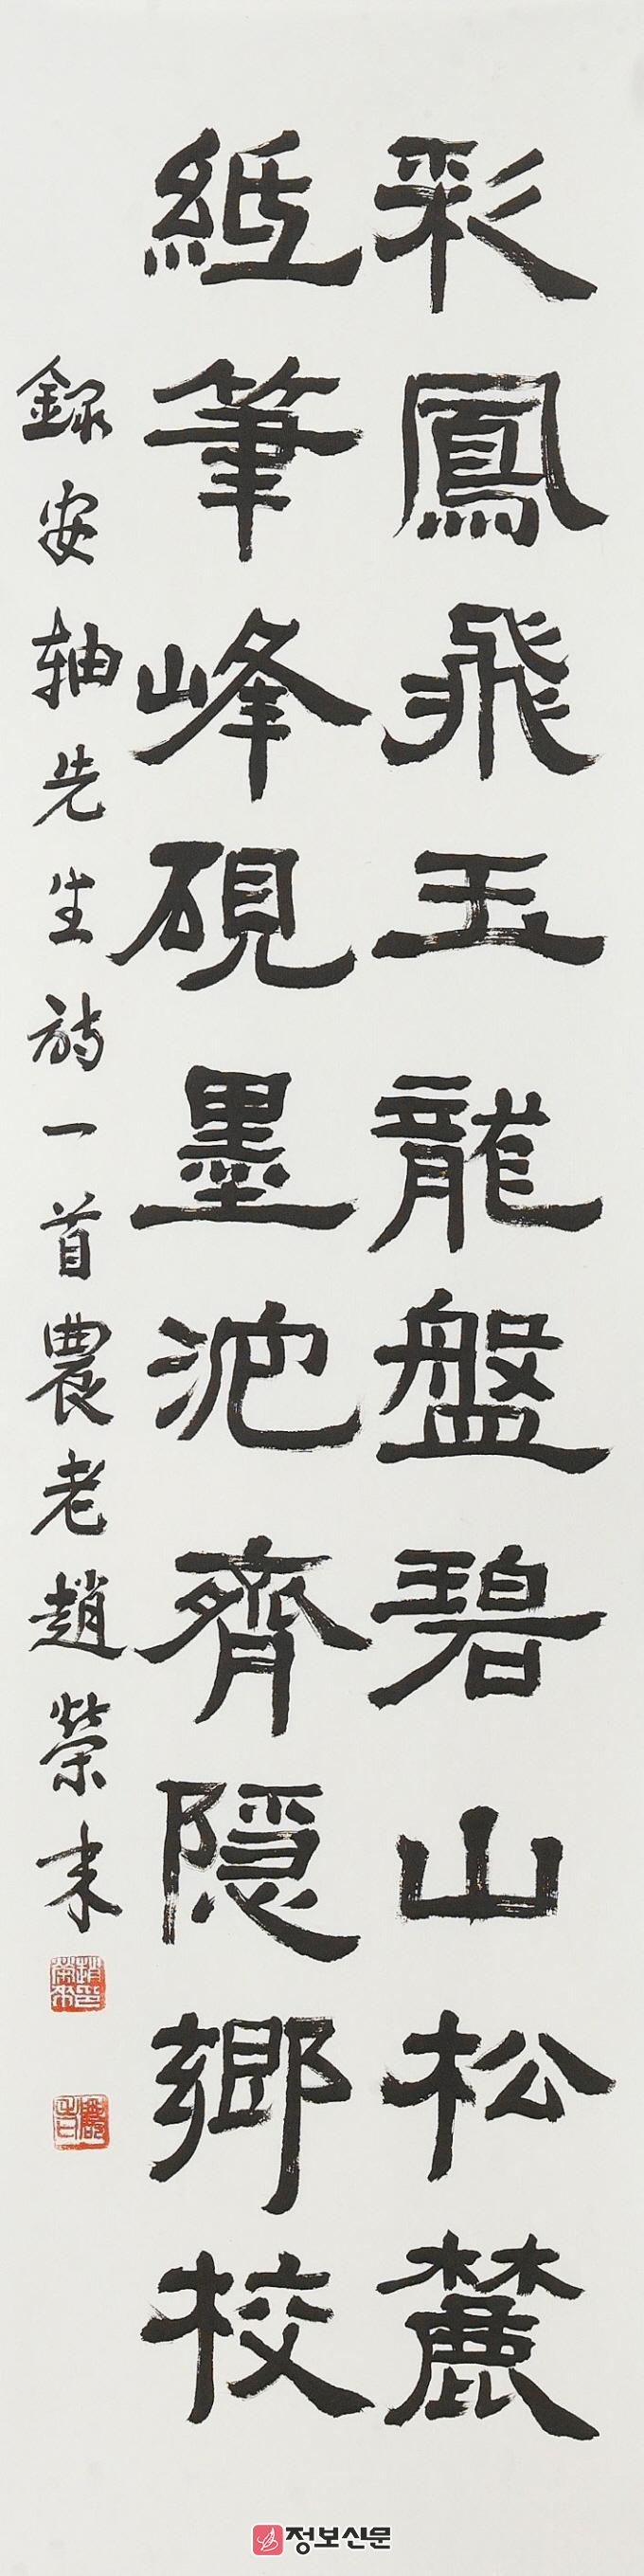 彩鳳飛玉龍盤碧山松麓
紙筆峰硯墨池齊隱鄉校
錄安軸先生詩一首農老趙榮來
정보신문